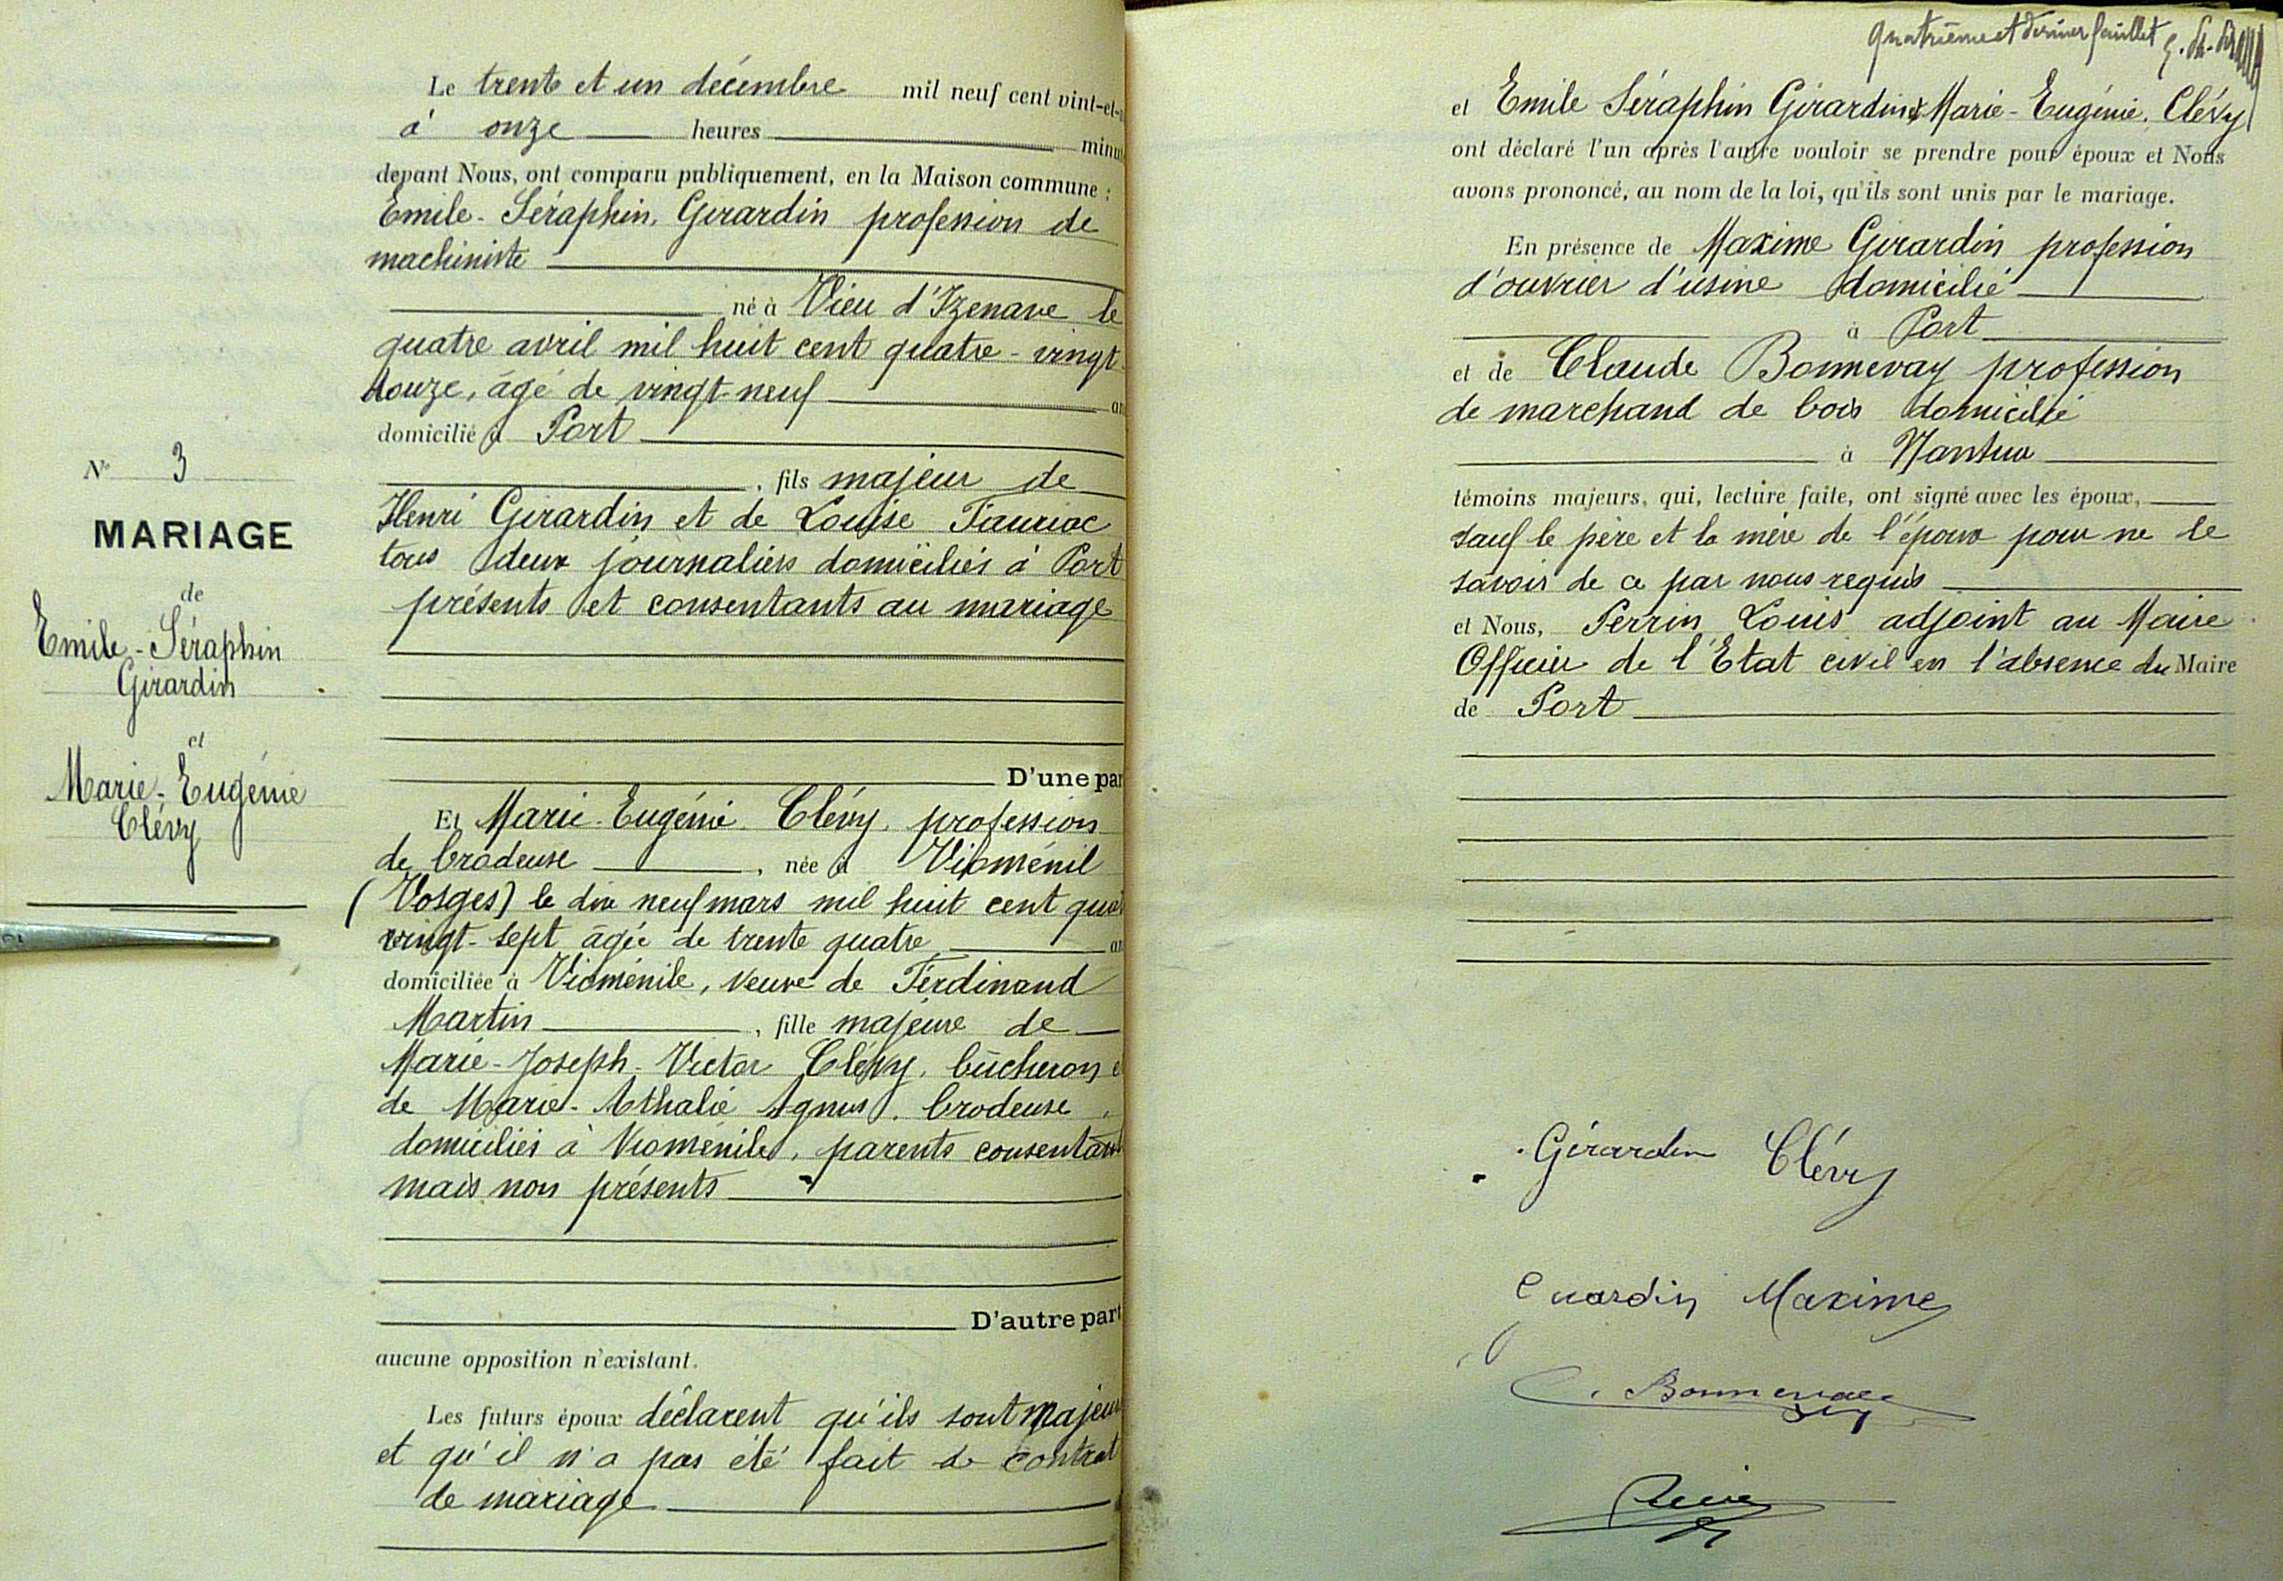 N° 3
MARIAGE
de
Emile-Séraphin
Girardin
et
Marie-Eugénie
Clévy
Le trente et un décembre mil neuf cent vint-et-
à onze heures minu
devant Nous, ont comparu publiquement, en la Maison commune :
Emile-Séraphin, Girardin profession de
machiniste
né à Vieu d'Izenave le
quatre avril mil huit cent quatre-vingt-
douze, âgé de vingt-neuf an
domicilié à Port
, fils majeur de
Henri Girardin et de Louise Fauriac
tous deux journaliers domiciliés à Port
présents et consentants au mariage
D'une par
Et Marie-Eugénie Clévy, profession
de brodeuse, née à Vioménil
(Vosges) le dix neuf mars mil huit cent quat
vingt-sept âgée de trente quatre an
domiciliée à Vioménile, veuve de Ferdinand
Martin, fille majeure de
Marie-Joseph-Victor Clévy, bûcheron e
de Marie-Athalie Agnus, brodeuse,
domiciliés à Vioménile, parents consentants
mais non présents
D'autre part
aucune opposition n'existant.
Les futurs époux déclarent qu'ils sont majeurs
et qu'il n'a pas été fait de contrat
de mariage
quatrième et dernier feuillet
et Emile Séraphin Girardin & Marie-Eugénie. Clévy
ont déclaré l'un après l'autre vouloir se prendre pour époux et Nous
avons prononcé, au nom de la loi, qu'ils sont unis par le mariage.
En présence de Maxime Girardin profession
d'ouvrier d'usine domicilié
à Port
et de Claude Bonnevay profession
de marchand de bois domicilié
à Nantua
témoins majeurs, qui, lecture faite, ont signé avec les époux,
sauf le père et la mère de l'époux pour ne le
savoir de ce par nous requis
et Nous, Perrin Louis adjoint au Maire
Officier de l'Etat civil en l'absence du Maire
de Port
Girardin Clévy
Girardin Maxime
C. Bonnevay